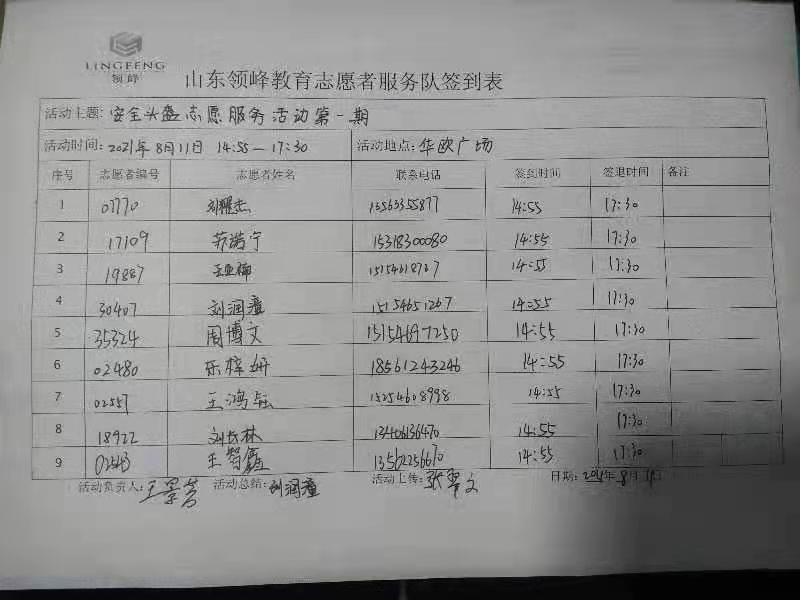 LINGFENG
领峰
山东领峰教育志愿者服务队签到表
活动主题: 安全头盔志愿服务活动第一期
活动时间: 2021年8月11日 14:55—17:30 活动地点: 华欧广场
序号 志愿者编号 志愿者姓名 联系电话 签到时间 签退时间 备注
1 07770 刘耀志 13563355877 14:55 17:30
2 17109 苏诺宁 15318300080 14:55 17:30
3 19887 14:55 17:30
4 30407 刘润潼 15154651267 14:55 17:30
5 35324 周博文 15154697250 14:55 17:30
6 02480 乐梓妍 18561243246 14:55 17:30
7 02557 王鸿 15254608998 14:55 17:30
8 18922 刘长林 13406136470 14:55 17:30
9 王智鑫 14:55 17:30
活动负责人: 王景芳 活动总结: 刘润潼 活动上传: 张翠文 日期: 2021年8月11日